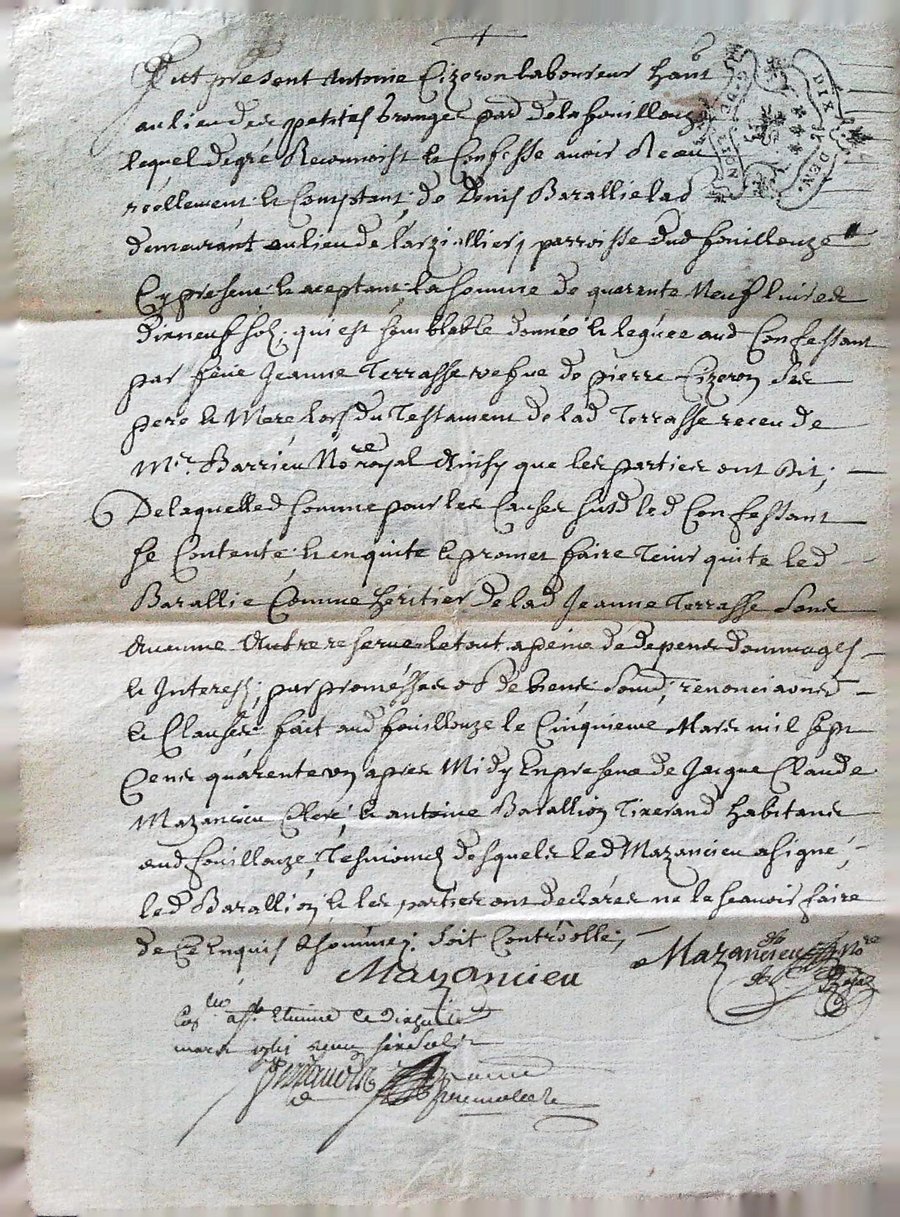 Fut present Antoinie Cizeron laboureur habt
au lieu des petites branges par de la fouillouze
lequel de gré Reconnoist & Confesse avoir Receu
réellement & Comptant de Denis Barallie lad
demeurant au lieu de larziallier, parroisse dud fouillouze
Cy present & aceptant la somme de quarente Neuf livres
dixneuf solz, qui est semblable donnéé & leguée aud Confessant
par feue Jeanne Terrasse vefue de pierre Cizeron ses
pere & Mere lors du Testament de lad Terrasse receu de
Mr. Barrieu Nore royal Ainsy que les parties ont dit;
De laquelled somme pour les Causes susd led Confessant
se Contente & en quite & promet faire tenir quite led
Barallie Comme héritier de lad Jeanne Terrasse sans
Aucune Autre reserve le tout a peine de depens dommages
& Interest; par promesses ob de biens soumd, renonciaons
& Clauses fait aud fouillouze le Cinquieme Mars mil sept
Cens quarente un apres Midy En presence de Jacque Claude
Mazancieu Clerc, & antoine Barallion Tixerand habitans
aud fouillouze, Tesmoins desquels led Mazancieu a signé,
led Barallion & les parties ont declarés ne le scavoir faire
de Ce Enquis & sommez. Soit Controollé;
Mazancieu Mazancieu Nore Royal
DIX DEN.
G. DE LYON